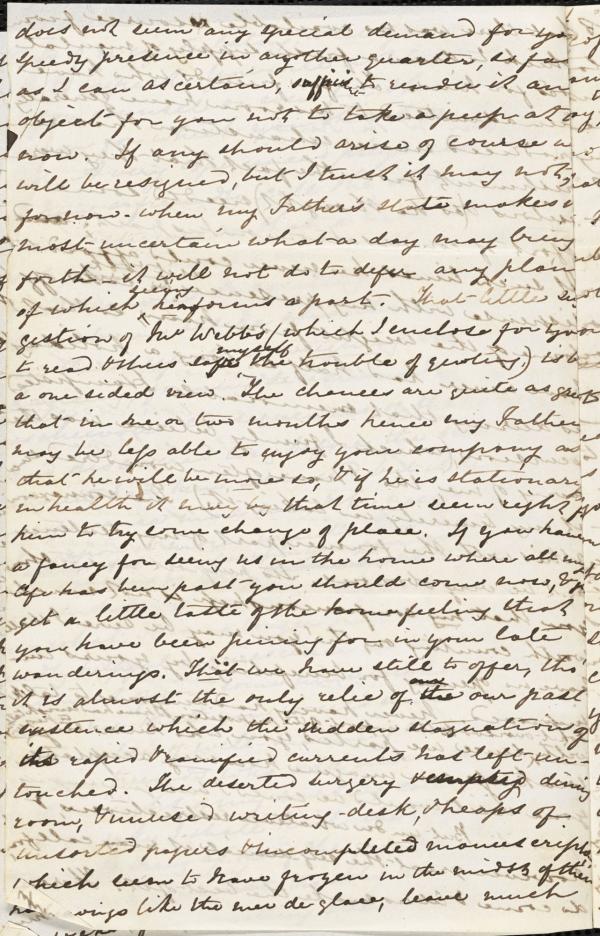 does not seem any special demand for you
speedy presence in another quarter, so far
as I can ascertain, to render it an
object for you not to take a peep at
now. If any should arise of course
will be resigned, but I trust it may not,
for now - when my Father's state makes
most uncertain what a day may bring
forth - it will not do to defer any plan
of which forms a part. That little sug
gestion of Mr Webb's (which I enclose for you
to read & thus myself the trouble of quoting) is
a one sided view. The chances are quite as great
that in one or two months hence my Father
may be less able to enjoy your company as
that he will be more so, & if he is stationary
in health it may by that time seem right for
him to try some change of place. If you have
a fancy for seeing us in the home where all
life has been past you should come now, &
get a little taste of the home feeling that
you have been pining for in your late
wanderings. That we have still to offer, tho'
it is almost the only relic of our past
existence which the sudden stagnation of
its rapid & ramified currents has left un-
touched. The deserted surgery & dining
room, & unused writing-desk, & heaps of
unsorted papers & incompleted manuscripts
which seem to have frozen in the midst of their
like the mer de glace, leave much